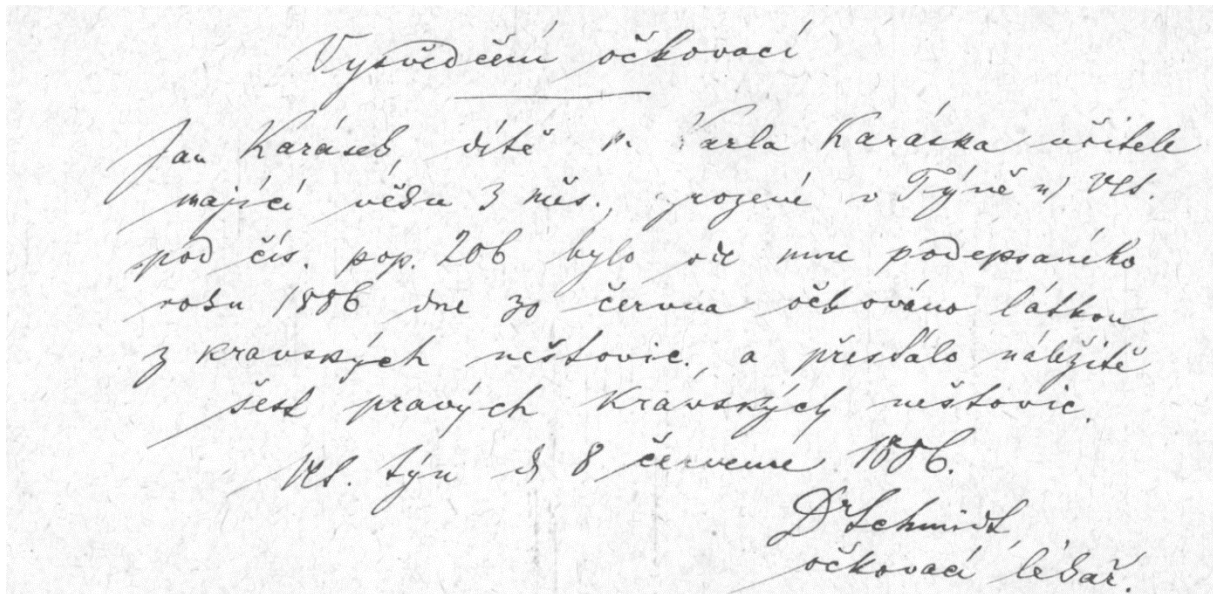 Vysvědčení očkovací
Jan Karásek, dítě p. Karla Karáska učitele
mající věku 3 měs., zrozené v Týně n/ Vlt.
pod čís. pop. 206 bylo ode mne podepsaného
roku 1886 dne 30 června očkováno látkou
z kravských neštovic, a přestálo náležitě
šest pravých kravských neštovic.
Vlt. Týn d 8 července 1886.
Dr Schmidt
očkovací lékař.